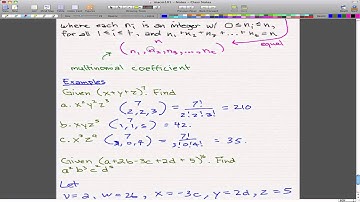 where each nᵢ is an integer w/ 0≤nᵢ≤n,
for all 1≤i≤t, and n₁+n₂+...+nₜ=n
n
(n₁,n₂,n₃,...,nₜ)
equal
multinomial coefficient
Examples
Given (x+y+z)⁷. Find
a. x²y²z³ (7 2,2,3) = 7!/2!2!3! = 210
b. xyz⁵ (7 1,1,5) = 42.
c. x³z⁴ (7 3,0,4) = 7!/3!0!4! = 35.
Given (a+2b-3c+2d+5)¹⁶. Find
a²b³c²d⁵
Let
v=2, w=2b, x=-3c, y=2d, z=5